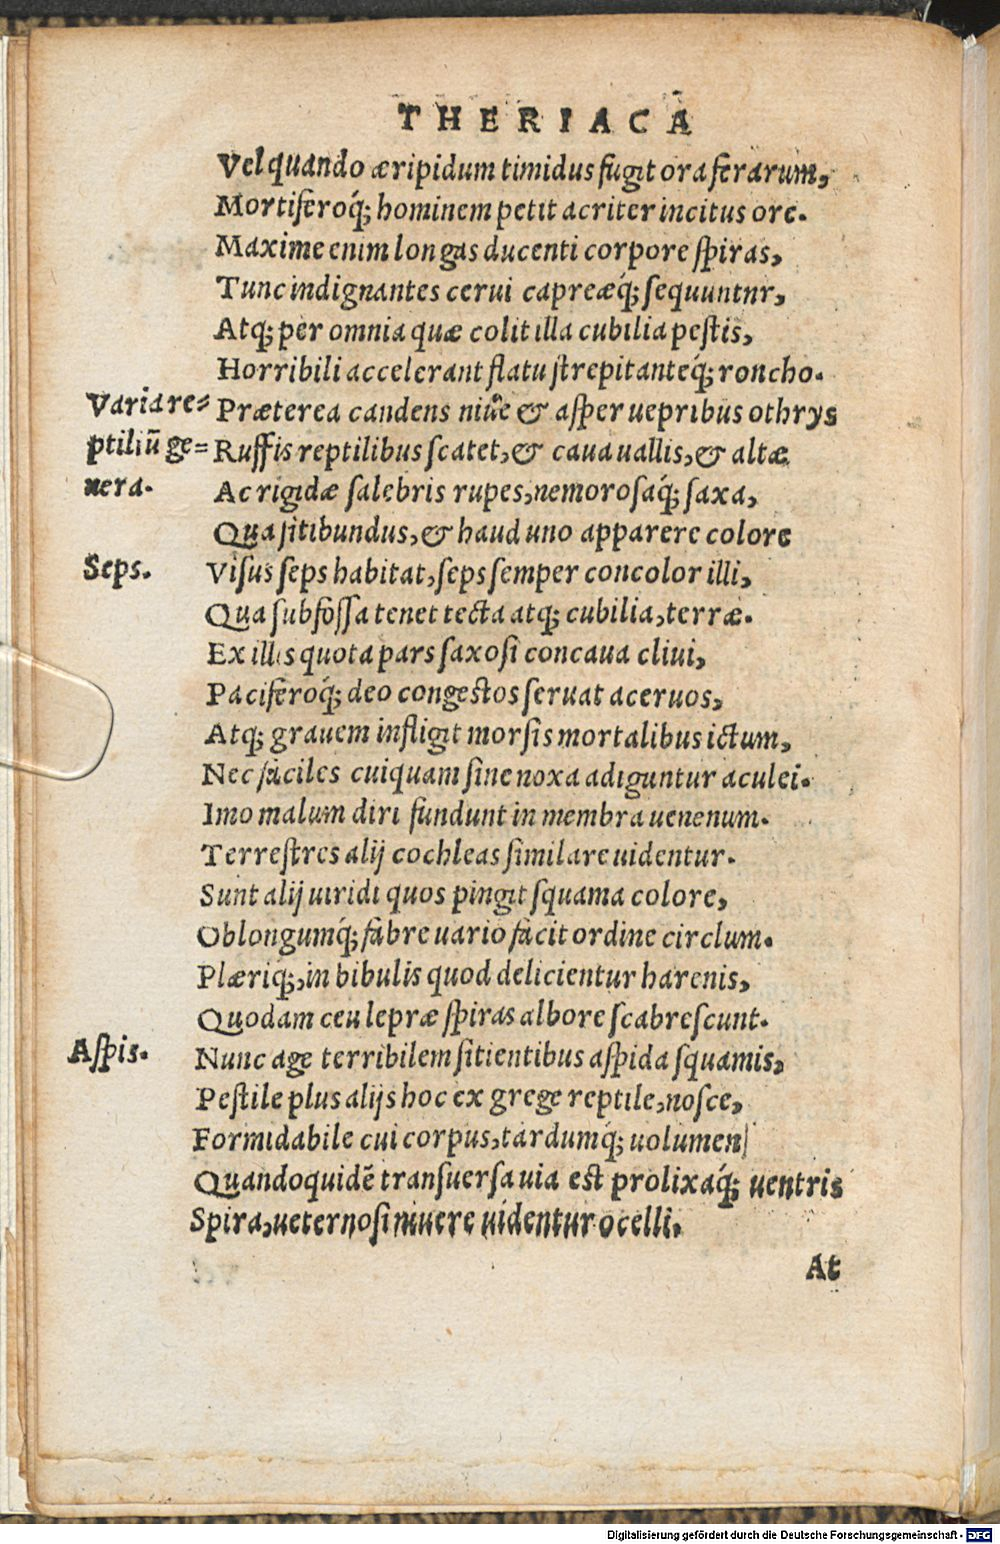 THERIACA
Vel quando æripidum timidus fugit ora ferarum,
Mortiferoq́; hominem petit acriter incitus ore.
Maxime enim longas ducenti corpore ſpiras,
Tunc indignantes cerui capreæq́; ſequuntnr,
Atq; per omnia quæ colit illa cubilia peſtis,
Horribili accelerant flatu ſtrepitanteq́; roncho.
Varia re= Præterea candens niue & aſper uepribus othrys
ptiliū ge= Ruffis reptilibus ſcatet, & caua uallis, & altæ
nera. Ac rigidæ ſalebris rupes, nemoroſaq́; ſaxa,
Qua ſitibundus, & haud uno apparere colore
Seps. Viſus ſeps habitat, ſeps ſemper concolor illi,
Qua ſubfoſſa tenet tecta atq; cubilia, terræ.
Ex illis quota pars ſaxoſi concaua cliui,
Paciferoq́; deo congeſtos ſeruat aceruos,
Atq; grauem infligit morſis mortalibus ictum,
Nec faciles cuiquam ſine noxa adiguntur aculei.
Imo malum diri fundunt in membra uenenum.
Terreſtres alij cochleas ſimilare uidentur.
Sunt alij uiridi quos pingit ſquama colore,
Oblongumq́; fabre uario facit ordine circlum.
Plæriq́;, in bibulis quod delicientur harenis,
Quodam ceu lepræ ſpiras albore ſcabreſcunt.
Aſpis. Nunc age terribilem ſitientibus aſpida ſquamis,
Peſtile plus alijs hoc ex grege reptile, noſce,
Formidabile cui corpus, tardumq́; uolumen
Quandoquidē tranſuerſa uia eſt prolixaq́; uentris
Spira, ueternoſi niuere uidentur ocelli.
At
Digitalisierung gefördert durch die Deutsche Forschungsgemeinschaft - DFG